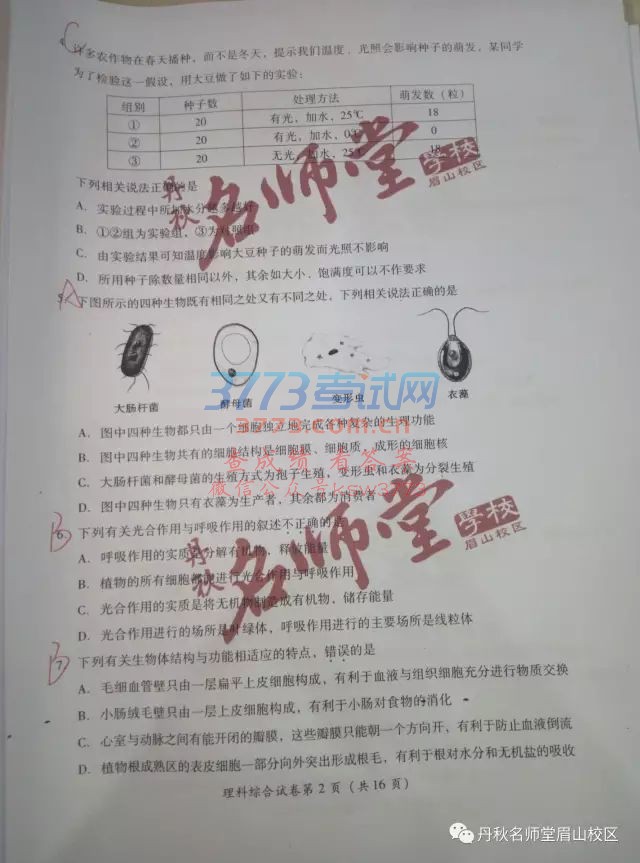 C
许多农作物在春天播种，而不是冬天，提示我们温度、光照会影响种子的萌发，某同学
为了检验这一假设，用大豆做了如下的实验：
组别 种子数 处理方法 萌发数（粒）
① 20 有光，加水，25℃ 18
② 20 有光，加水，0℃ 0
③ 20 无光，加水，25℃ 18
下列相关说法正确的是
A．实验过程中所加水分越多越好
B．①②组为实验组，③为对照组
C．由实验结果可知温度影响大豆种子的萌发而光照不影响
D．所用种子除数量相同以外，其余如大小、饱满度可以不作要求
A
5．下图所示的四种生物既有相同之处又有不同之处，下列相关说法正确的是
大肠杆菌 酵母菌 变形虫 衣藻
A．图中四种生物都只由一个细胞独立地完成各种复杂的生理功能
B．图中四种生物共有的细胞结构是细胞膜、细胞质、成形的细胞核
C．大肠杆菌和酵母菌的生殖方式为孢子生殖，变形虫和衣藻为分裂生殖
D．图中四种生物只有衣藻为生产者，其余都为消费者
B
6．下列有关光合作用与呼吸作用的叙述不正确的是
A．呼吸作用的实质是分解有机物，释放能量
B．植物的所有细胞都能进行光合作用与呼吸作用
C．光合作用的实质是将无机物制造成有机物，储存能量
D．光合作用进行的场所是叶绿体，呼吸作用进行的主要场所是线粒体
B
7．下列有关生物体结构与功能相适应的特点，错误的是
A．毛细血管壁只由一层扁平上皮细胞构成，有利于血液与组织细胞充分进行物质交换
B．小肠绒毛壁只由一层上皮细胞构成，有利于小肠对食物的消化
C．心室与动脉之间有能开闭的瓣膜，这些瓣膜只能朝一个方向开，有利于防止血液倒流
D．植物根成熟区的表皮细胞一部分向外突出形成根毛，有利于根对水分和无机盐的吸收
理科综合试卷第 2 页（共 16 页）
丹秋名师堂学校
眉山校区
3773考试网
3773.com.cn
查成绩 看答案
丹秋名师堂学校
眉山校区
丹秋名师堂眉山校区